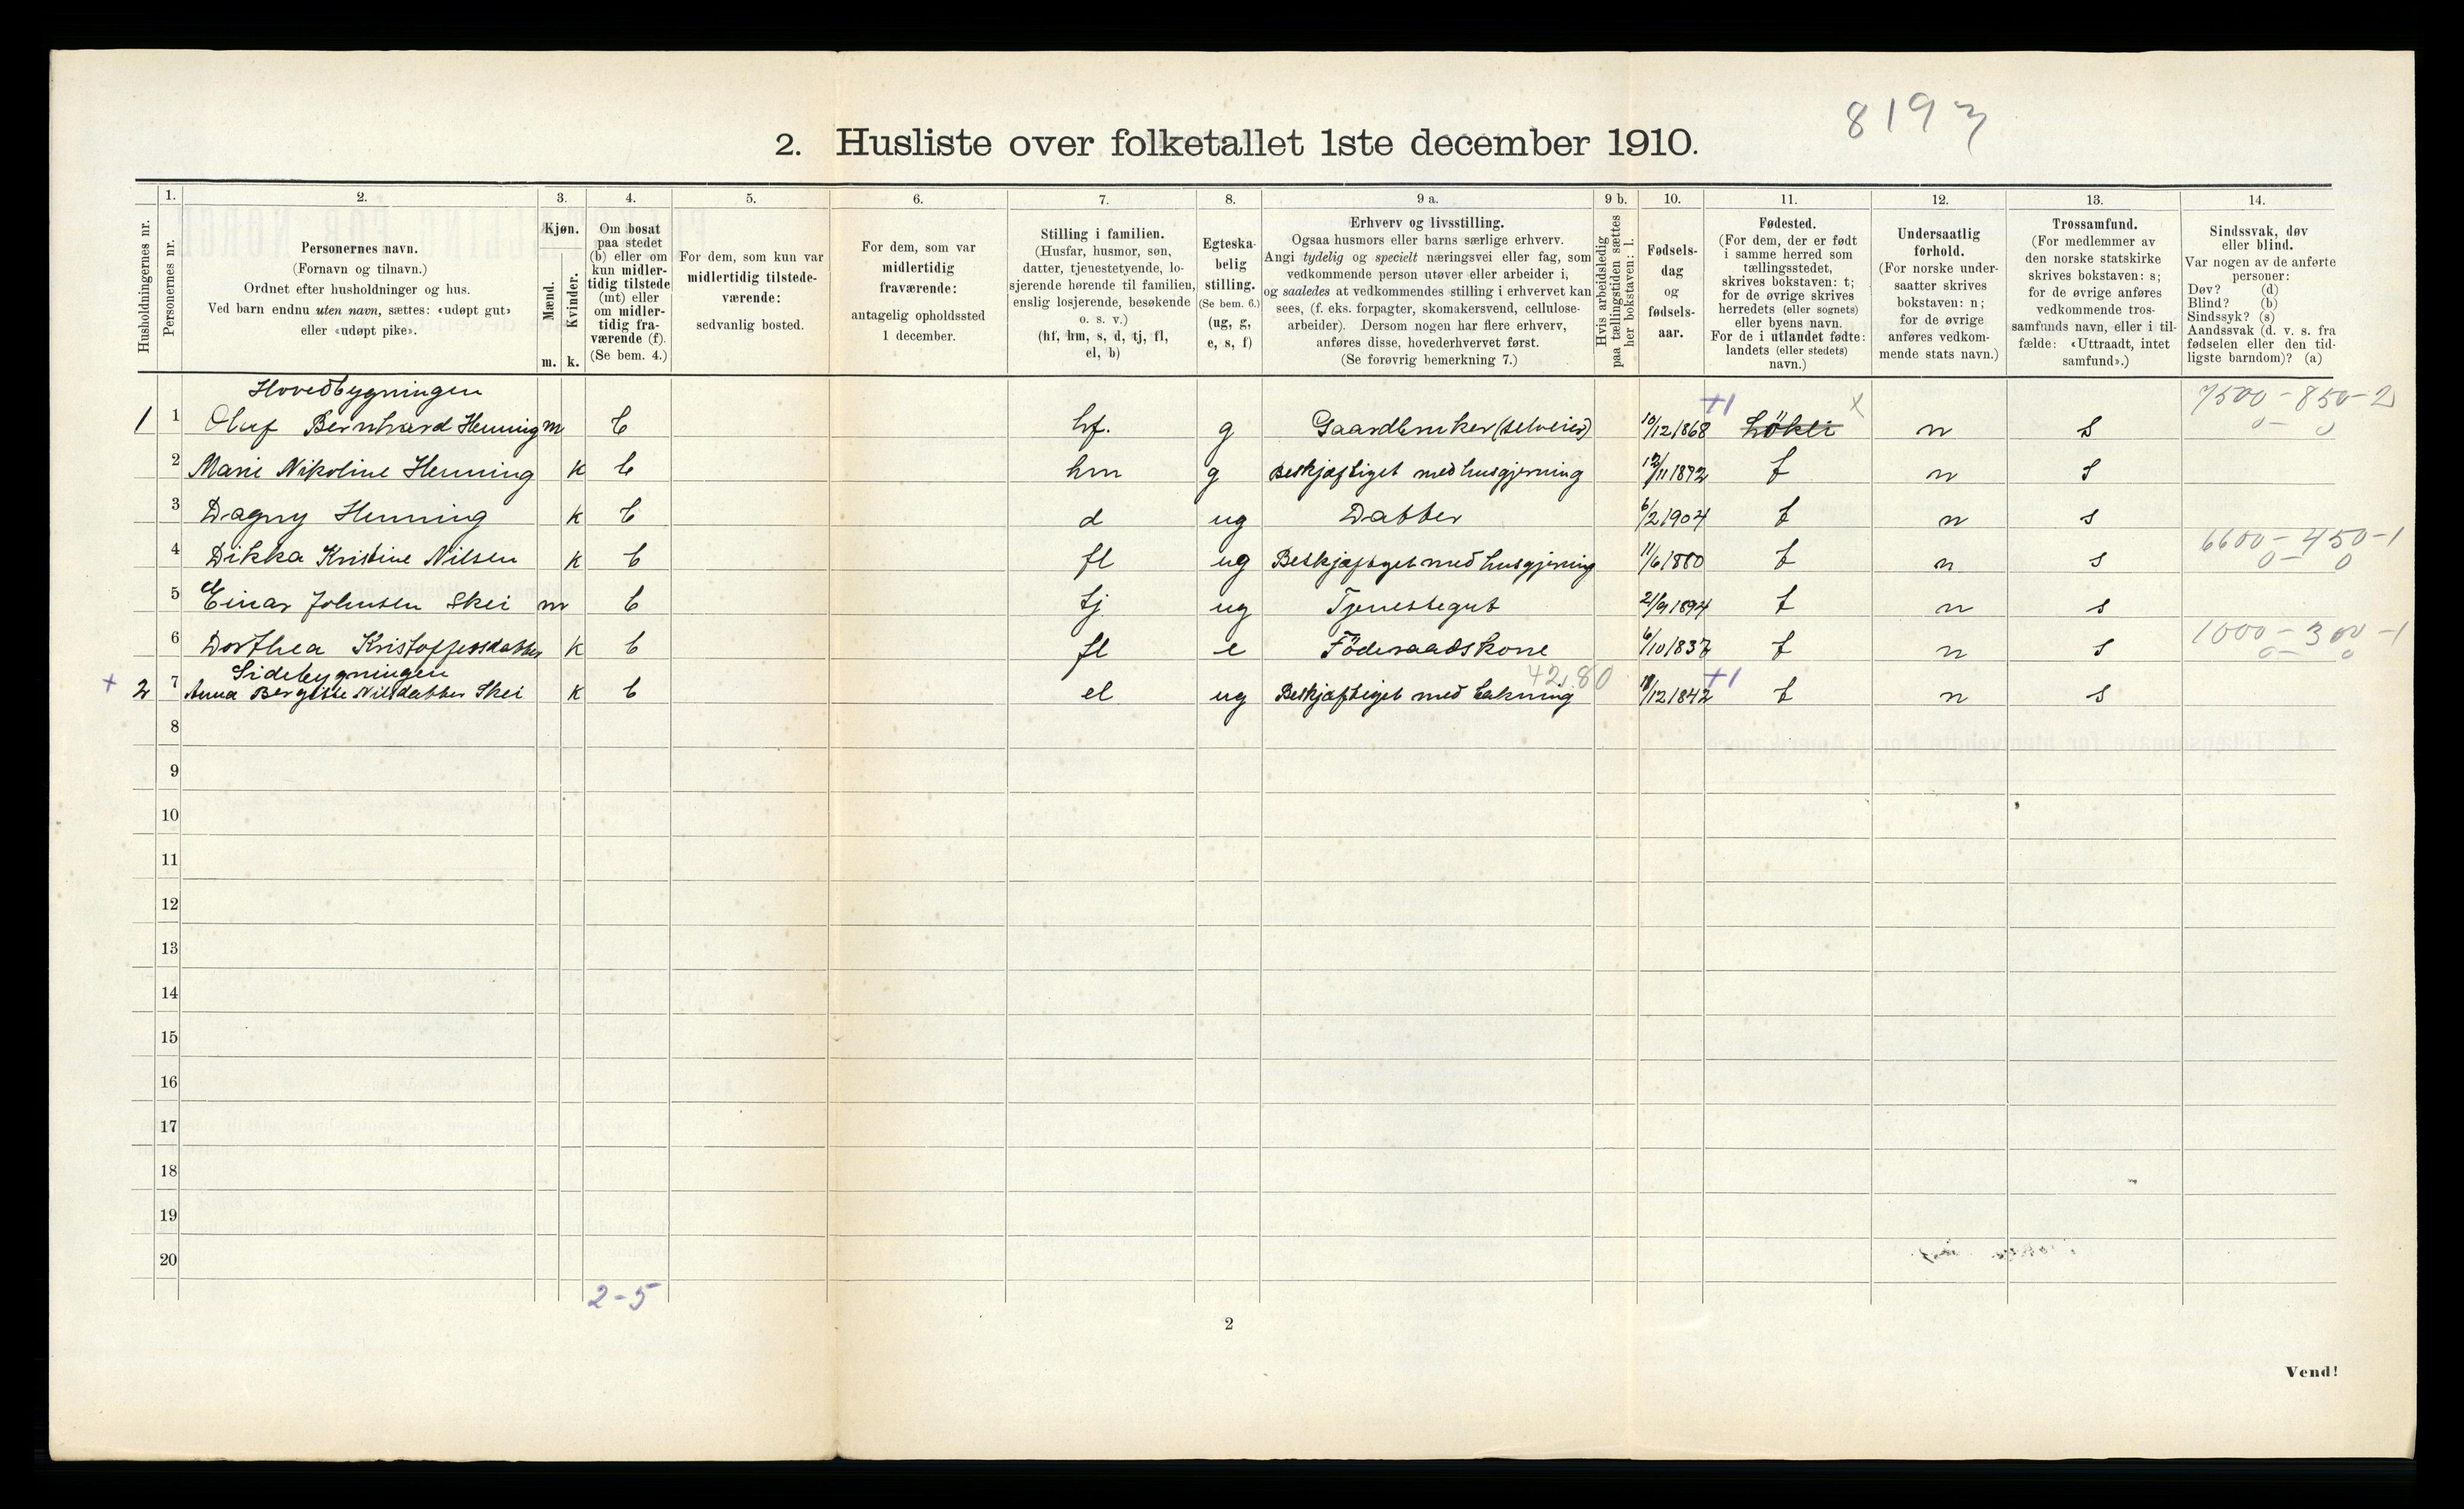 8193
2. Husliste over folketallet 1ste december 1910.
Husholdningernes nr.
1.
Personernes nr.
2.
Personernes navn.
(Fornavn og tilnavn.)
Ordnet efter husholdninger og hus.
Ved barn endnu uten navn, sættes: «udøpt gut»
eller «udøpt pike».
3.
Kjøn.
Mænd.
Kvinder.
m. k.
4.
Om bosat
paa stedet
(b) eller om
kun midler-
tidig tilstede
(mt) eller
om midler-
tidig fra-
værende (f).
(Se bem. 4.)
5.
For dem, som kun var
midlertidig tilstede-
værende:
sedvanlig bosted.
6.
For dem, som var
midlertidig
fraværende:
antagelig opholdssted
1 december.
7.
Stilling i familien.
(Husfar, husmor, søn,
datter, tjenestetyende, lo-
sjerende hørende til familien,
enslig losjerende, besøkende
o. s. v.)
(hf, hm, s, d, tj, fl,
el, b)
8.
Egteska-
belig
stilling.
(Se bem. 6.)
(ug, g,
e, s, f)
9 a.
Erhverv og livsstilling.
Ogsaa husmors eller barns særlige erhverv.
Angi tydelig og specielt næringsvei eller fag, som
vedkommende person utøver eller arbeider i,
og saaledes at vedkommendes stilling i erhvervet kan
sees, (f. eks. forpagter, skomakersvend, cellulose-
arbeider). Dersom nogen har flere erhverv,
anføres disse, hovederhvervet først.
(Se forøvrig bemerkning 7.)
9 b.
Hvis arbeidsledig
paa tællingstiden sættes
her bokstaven: l.
10.
Fødsels-
dag
og
fødsels-
aar.
11.
Fødested.
(For dem, der er født
i samme herred som
tællingsstedet,
skrives bokstaven: t;
for de øvrige skrives
herredets (eller sognets)
eller byens navn.
For de i utlandet fødte:
landets (eller stedets)
navn.)
12.
Undersaatlig
forhold.
(For norske under-
saatter skrives
bokstaven: n;
for de øvrige
anføres vedkom-
mende stats navn.)
13.
Trossamfund.
(For medlemmer av
den norske statskirke
skrives bokstaven: s;
for de øvrige anføres
vedkommende tros-
samfunds navn, eller i til-
fælde: «Uttraadt, intet
samfund».)
14.
Sindssvak, døv
eller blind.
Var nogen av de anførte
personer:
Døv? (d)
Blind? (b)
Sindssyk? (s)
Aandssvak (d. v. s. fra
fødselen eller den tid-
ligste barndom)? (a)
Hovedbygningen
7500-850-2
0- 0
1 1 Oluf Bernhard Henning m b hf. g Gaardbruker (selveier) 10/12 1868 +1 x n s
2 Marie Nikoline Henning k b hm g Beskjæftiget med husgjerning 12/11 1872 t n s
3 Dagny Henning k b d ug Datter 6/2 1904 t n s
6600-450-1
0- 0
4 Dikka Kristine Nilsen k b fl ug Beskjæftiget med husgjerning 11/6 1880 t n s
5 Einar Johnsen Skei m b tj ug Tjenestegut 21/9 1894 t n s
1000-300-1
0- 0
6 Dorthea Kristoffersdatter k b fl e Föderaadskone 6/10 1837 t n s
Sidebygningen
42.80
+ 2 7 Anna Bergitte Nilsdatter Skei k b el ug Beskjæftiget med bakning 18/12 1842 +1 t n s
8
9
10
11
12
13
14
15
16
17
18
19
20
2-5
2
Vend!